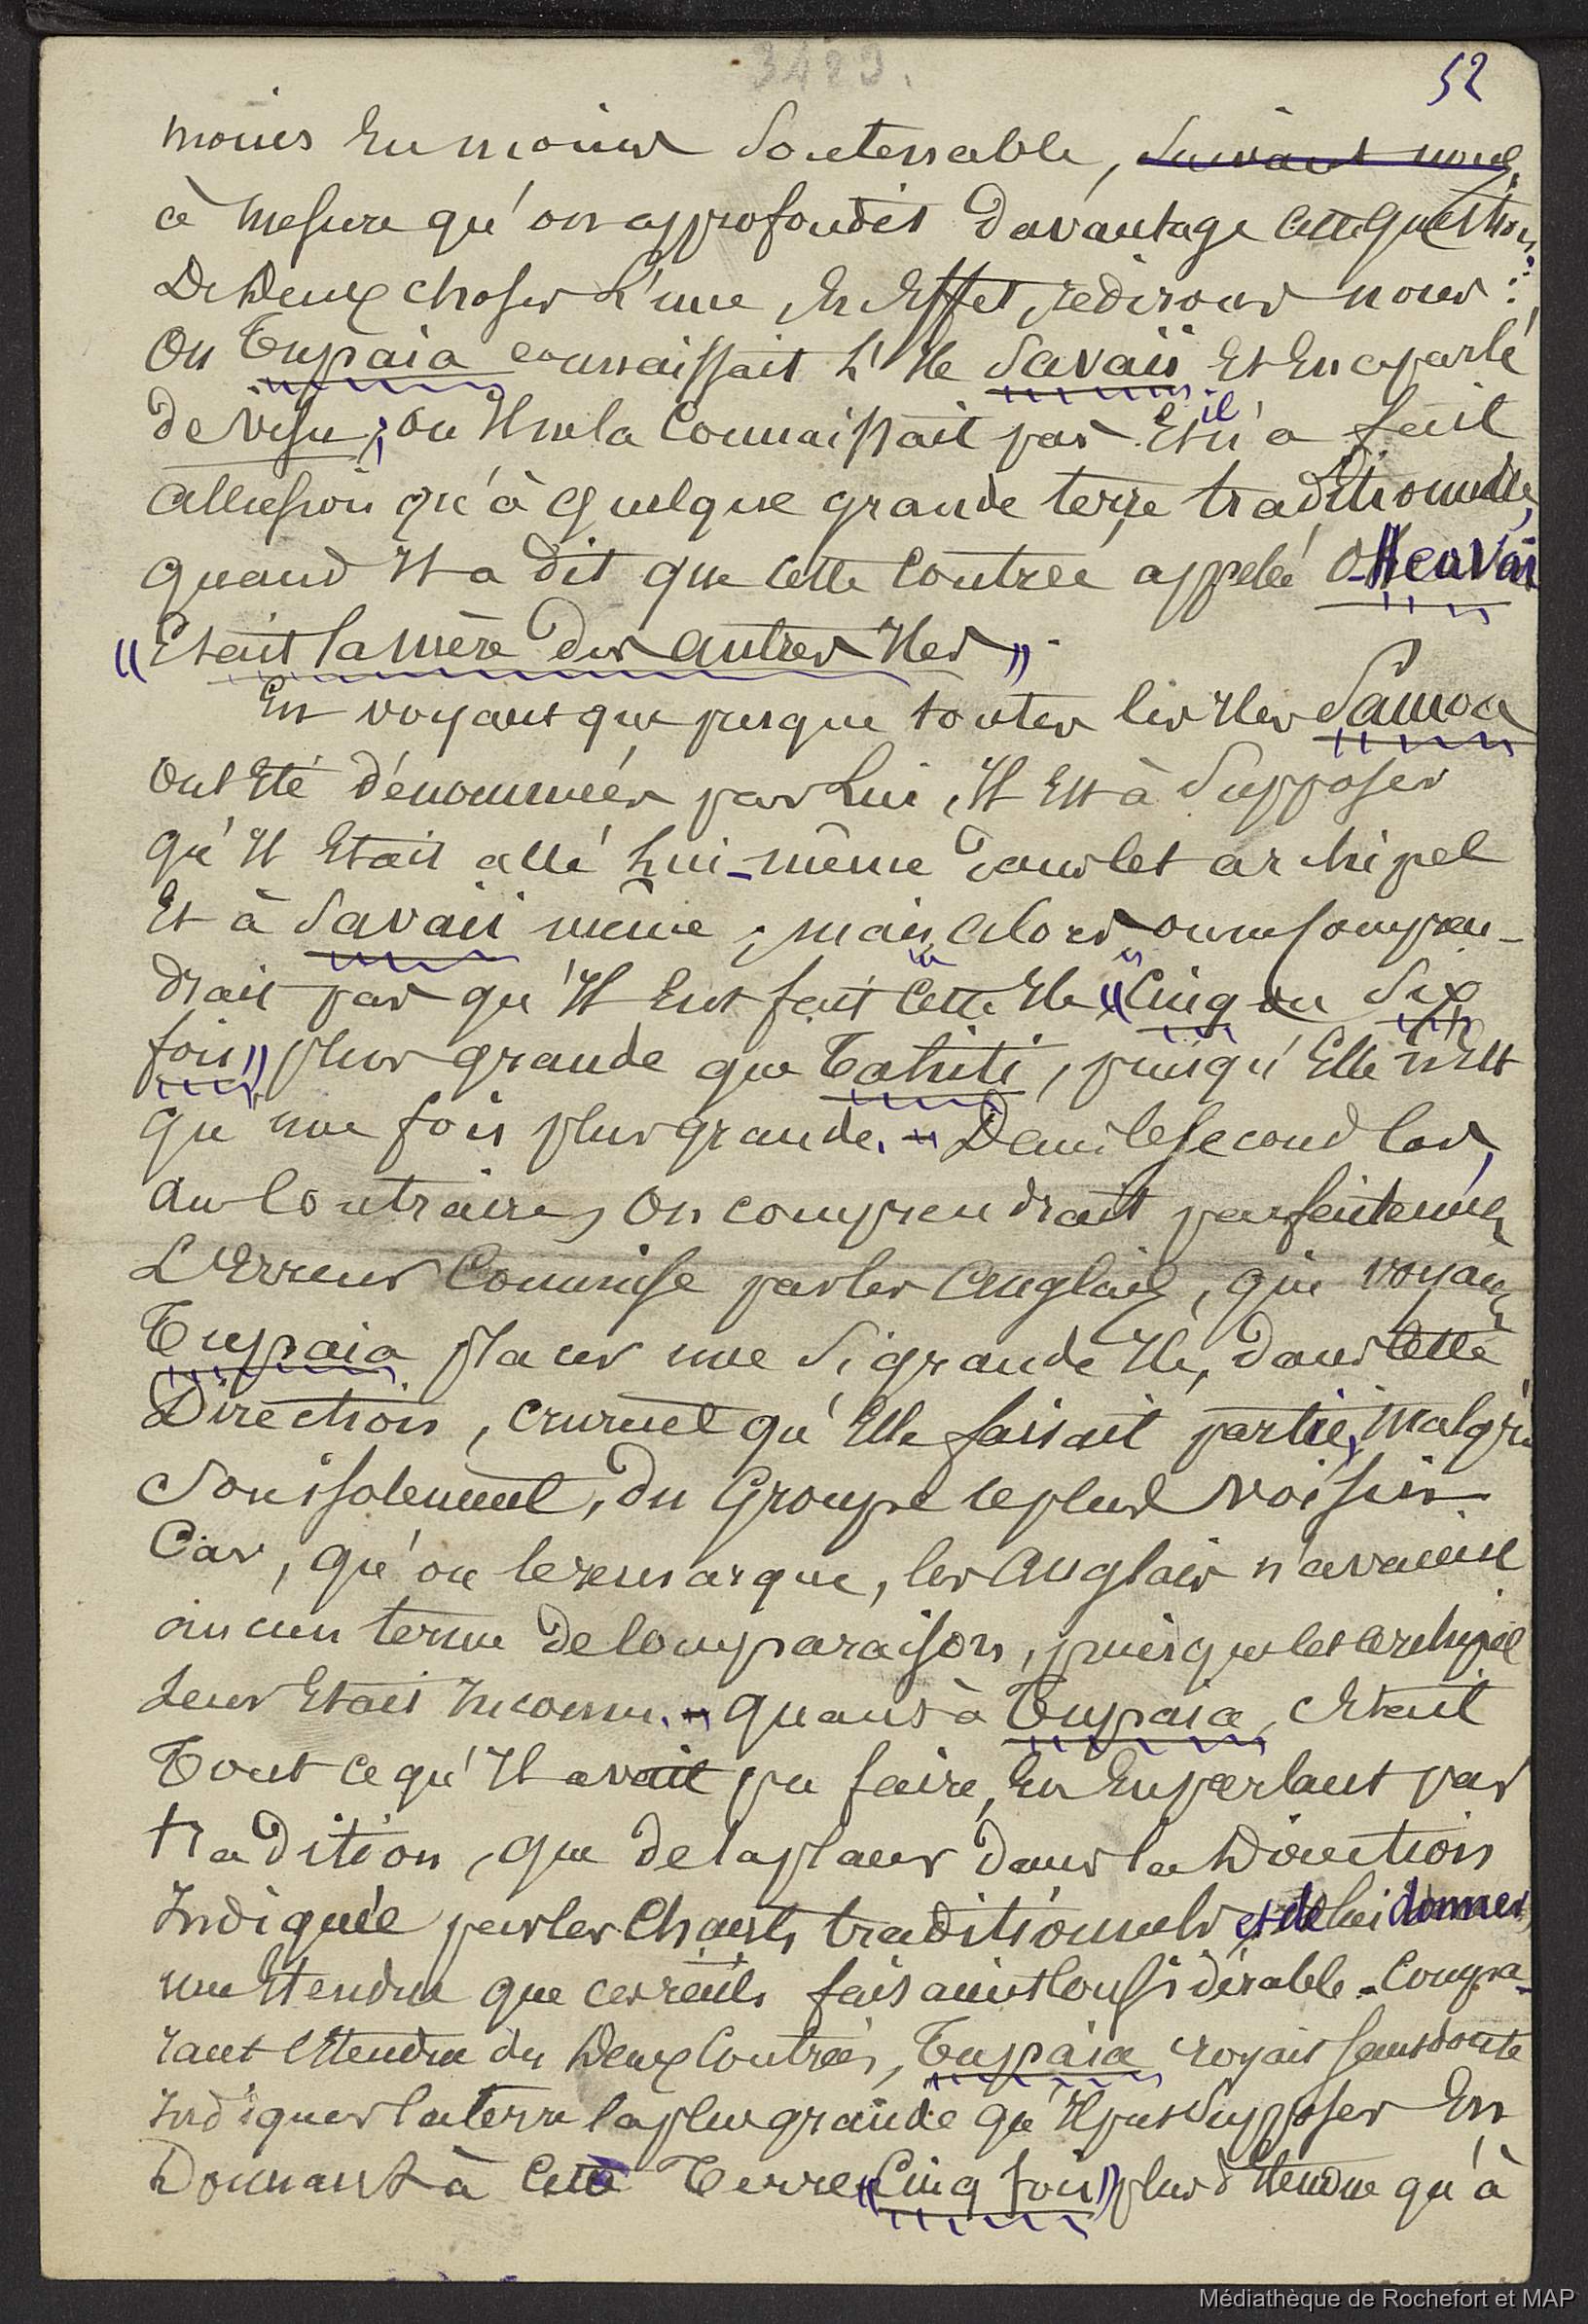 3429.
52
moins en moins soutenable, suivant nous,
à mesure qu'on approfondit davantage cette question.
De deux choses l'une, en effet, redirons nous :
Ou Tupaia connaissait l'Ile Savaii et en a parlé
de visu ; ou il ne la connaissait pas et il n'a fait
allusion qu'à quelque grande terre traditionnelle,
quand il a dit que cette contrée appelée O-Heavai
"Etait la mère des autres Iles".
En voyant que presque toutes les Iles Samoa
ont été dénommées par lui, il est à supposer
qu'il était allé lui-même dans cet archipel
et à Savaii même ; mais, alors, on ne compren-
drait pas qu'il eut fait cette Ile "cinq ou six
fois" plus grande que Tahiti, puisqu'elle n'est
qu'une fois plus grande. - Dans le second cas,
au contraire, on comprendrait parfaitement
l'erreur commise par les Anglais, qui voyant
Tupaia placer une si grande Ile, dans cette
direction, crurent qu'elle faisait partie, malgré
son isolement, du groupe le plus voisin
Car, qu'on le remarque, les Anglais n'avaient
aucun terme de comparaison, puisque cet archipel
leur était inconnu. - Quant à Tupaia, c'était
tout ce qu'il avait pu faire, en en parlant par
tradition, que de la placer dans la direction
indiquée par les chants traditionnels et de lui donner
une étendue que ces récits faisaient considérable. Compa-
rant l'étendue des deux contrées, Tupaia croyait sans doute
indiquer la terre la plus grande qu'il put supposer en
donnant à cette terre "cinq fois" plus d'étendue qu'à
Médiathèque de Rochefort et MAP